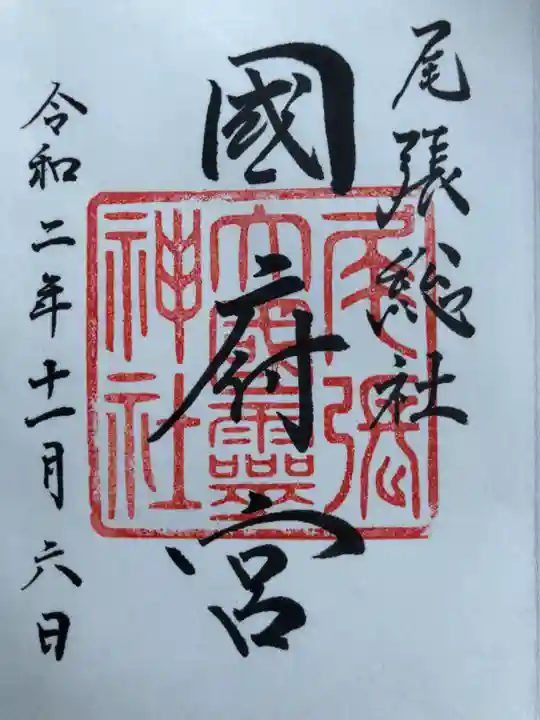 尾張総社
國府宮
令和二年十一月六日
尾張
大國霊
神社